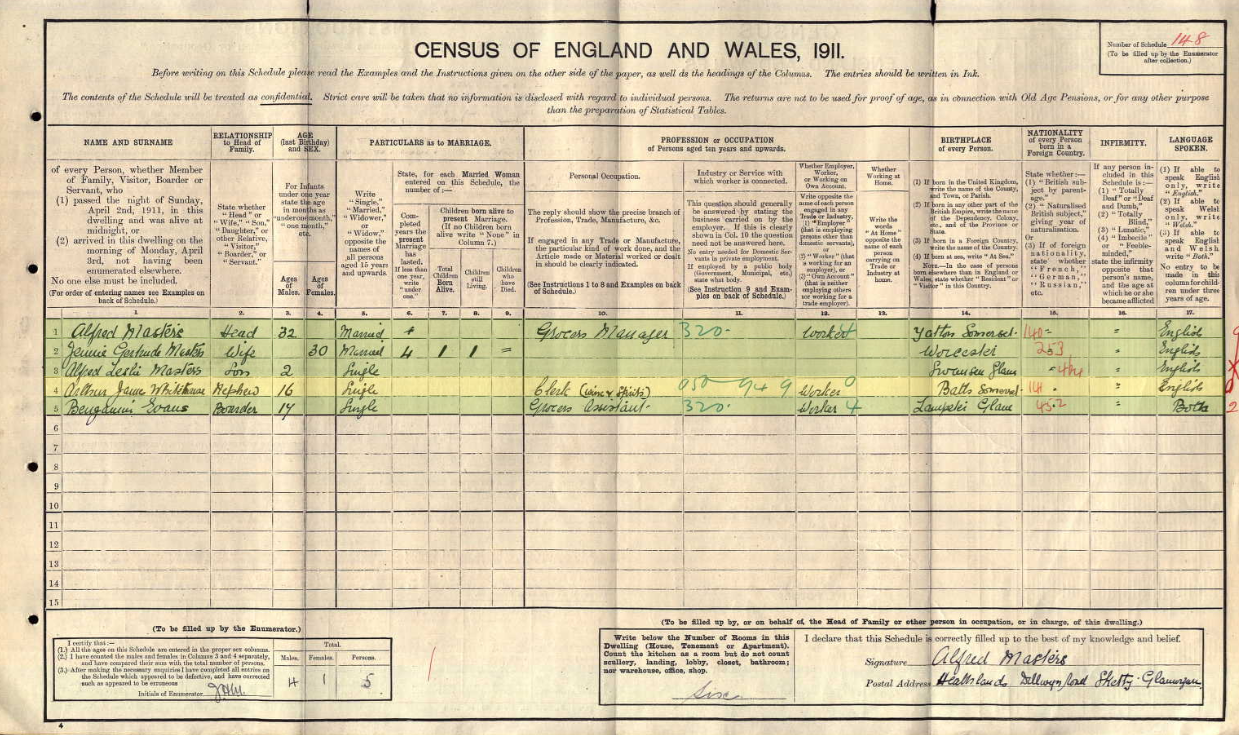 CENSUS OF ENGLAND AND WALES, 1911.
Number of Schedule 148
(To be filled up by the Enumerator
after collection.)
Before writing on this Schedule please read the Examples and the Instructions given on the other side of the paper, as well as the headings of the Columns. The entries should be written in Ink.
The contents of the Schedule will be treated as confidential. Strict care will be taken that no information is disclosed with regard to individual persons. The returns are not to be used for proof of age, as in connection with Old Age Pensions, or for any other purpose
than the preparation of Statistical Tables.
NAME AND SURNAME
of every Person, whether Member
of Family, Visitor, Boarder or
Servant, who
(1) passed the night of Sunday,
April 2nd, 1911, in this
dwelling and was alive at
midnight, or
(2) arrived in this dwelling on the
morning of Monday, April
3rd, not having been
enumerated elsewhere.
No one else must be included.
(For order of entering names see Examples on
back of Schedule.)
RELATIONSHIP
to Head of
Family.
State whether
"Head," or
"Wife," "Son,"
"Daughter," or
other Relative,
"Visitor,"
"Boarder," or
"Servant."
AGE
(last Birthday)
and SEX.
For Infants
under one year
state the age
in months as
"under one month,"
"one month,"
etc.
Ages
of
Males.
Ages
of
Females.
PARTICULARS as to MARRIAGE.
Write
"Single,"
"Married,"
"Widower,"
or
"Widow,"
opposite the
names of
all persons
aged 15 years
and upwards.
State, for each Married Woman
entered on this Schedule, the
number of :—
Completed
years the
present
Marriage
has
lasted.
If less than
one year
write
"under
one."
Children born alive to
present Marriage.
(If no Children born
alive write "None" in
Column 7.)
Total
Children
Born
Alive.
Children
still
Living.
Children
who
have
Died.
PROFESSION or OCCUPATION
of Persons aged ten years and upwards.
Personal Occupation.
The reply should show the precise branch of
Profession, Trade, Manufacture, &c.
If engaged in any Trade or Manufacture,
the particular kind of work done, and the
Article made or Material worked or dealt
in should be clearly indicated.
(See Instructions 1 to 8 and Examples on back
of Schedule.)
Industry or Service with
which worker is connected.
This question should generally
be answered by stating the
business carried on by the
employer. If this is clearly
shown in Col. 10 the question
need not be answered here.
No entry needed for Domestic Servants
in private employment.
If employed by a public body
(Government, Municipal, etc.)
state what body.
(See Instruction 9 and Examples
on back of Schedule.)
Whether Employer,
Worker,
or Working on
Own Account.
Write opposite the
name of each person
engaged in any
Trade or Industry,
(1) "Employer"
(that is employing
persons other than
domestic servants),
or
(2) "Worker" (that
is working for an
employer), or
(3) "Own Account"
(that is neither
employing others
nor working for a
trade employer).
Whether
Working at
Home.
Write the
words
"At Home"
opposite the
name of each
person
carrying on
Trade or
Industry at
home.
BIRTHPLACE
of every person.
(1) If born in the United Kingdom,
write the name of the County,
and Town, or Parish.
(2) If born in any other part of the
British Empire, write the name
of the Dependency, Colony,
etc., and of the Province or
State.
(3) If born in a Foreign Country,
write the name of the Country.
(4) If born at sea, write "At Sea."
NOTE.—In the case of persons
born elsewhere than in England or
Wales, state whether "Resident" or
"Visitor" in this Country.
NATIONALITY
of every Person
born in a
Foreign Country.
State whether :—
(1) "British subject
by parentage."
(2) "Naturalised
British subject,"
giving year of
naturalisation.
Or
(3) If of foreign
nationality,
state whether
"French,"
"German,"
"Russian,"
etc.
INFIRMITY.
If any person included
in this
Schedule is :—
(1) "Totally
Deaf" or "Deaf
and Dumb,"
(2) "Totally
Blind,"
(3) "Lunatic,"
(4) "Imbecile"
or "Feeble-
minded,"
state the infirmity
opposite that
person's name,
and the age at
which he or she
became afflicted
LANGUAGE
SPOKEN.
(1) If able to
speak English
only, write
"English."
(2) If able to
speak Welsh
only, write
"Welsh."
(3) If able to
speak English
and Welsh
write "Both."
No entry to be
made in this
column for children
under three
years of age.
1. 2. 3. 4. 5. 6. 7. 8. 9. 10. 11. 12. 13. 14. 15. 16. 17.
1 Alfred Masters Head 32 Married 4 Grocers Manager 320 Worker Yatton Somerset 140 " English
2 Jennie Gertrude Masters Wife 30 Married 4 1 1 Worcester 253 " English
3 Alfred Leslie Masters Son 2 Single Swansea Glam " English
4 Arthur Whitehouse Nephew 16 Single Clerk (Wine & Spirits) Worker 0 Bath Somerset 141 " English
5 Benjamin Evans Boarder 17 Single Grocers Assistant 320 Worker 4 Glam 452 " Both
6
7
8
9
10
11
12
13
14
15
(To be filled up by the Enumerator.)
I certify that :—
(1.) All the ages on this Schedule are entered in the proper sex columns.
(2.) I have counted the males and females in Columns 3 and 4 separately,
and have compared their sum with the total number of persons.
(3.) After making the necessary enquiries I have completed all entries on
the Schedule which appeared to be defective, and have corrected
such as appeared to be erroneous
Initials of Enumerator
Total.
Males. Females. Persons.
4 1 5
(To be filled up by, or on behalf of, the Head of Family or other person in occupation, or in charge, of this dwelling.)
Write below the Number of Rooms in this
Dwelling (House, Tenement or Apartment).
Count the kitchen as a room but do not count
scullery, landing, lobby, closet, bathroom;
nor warehouse, office, shop.
I declare that this Schedule is correctly filled up to the best of my knowledge and belief.
Signature Alfred Masters
Postal Address Dillwyn Road Sketty Glamorgan
4